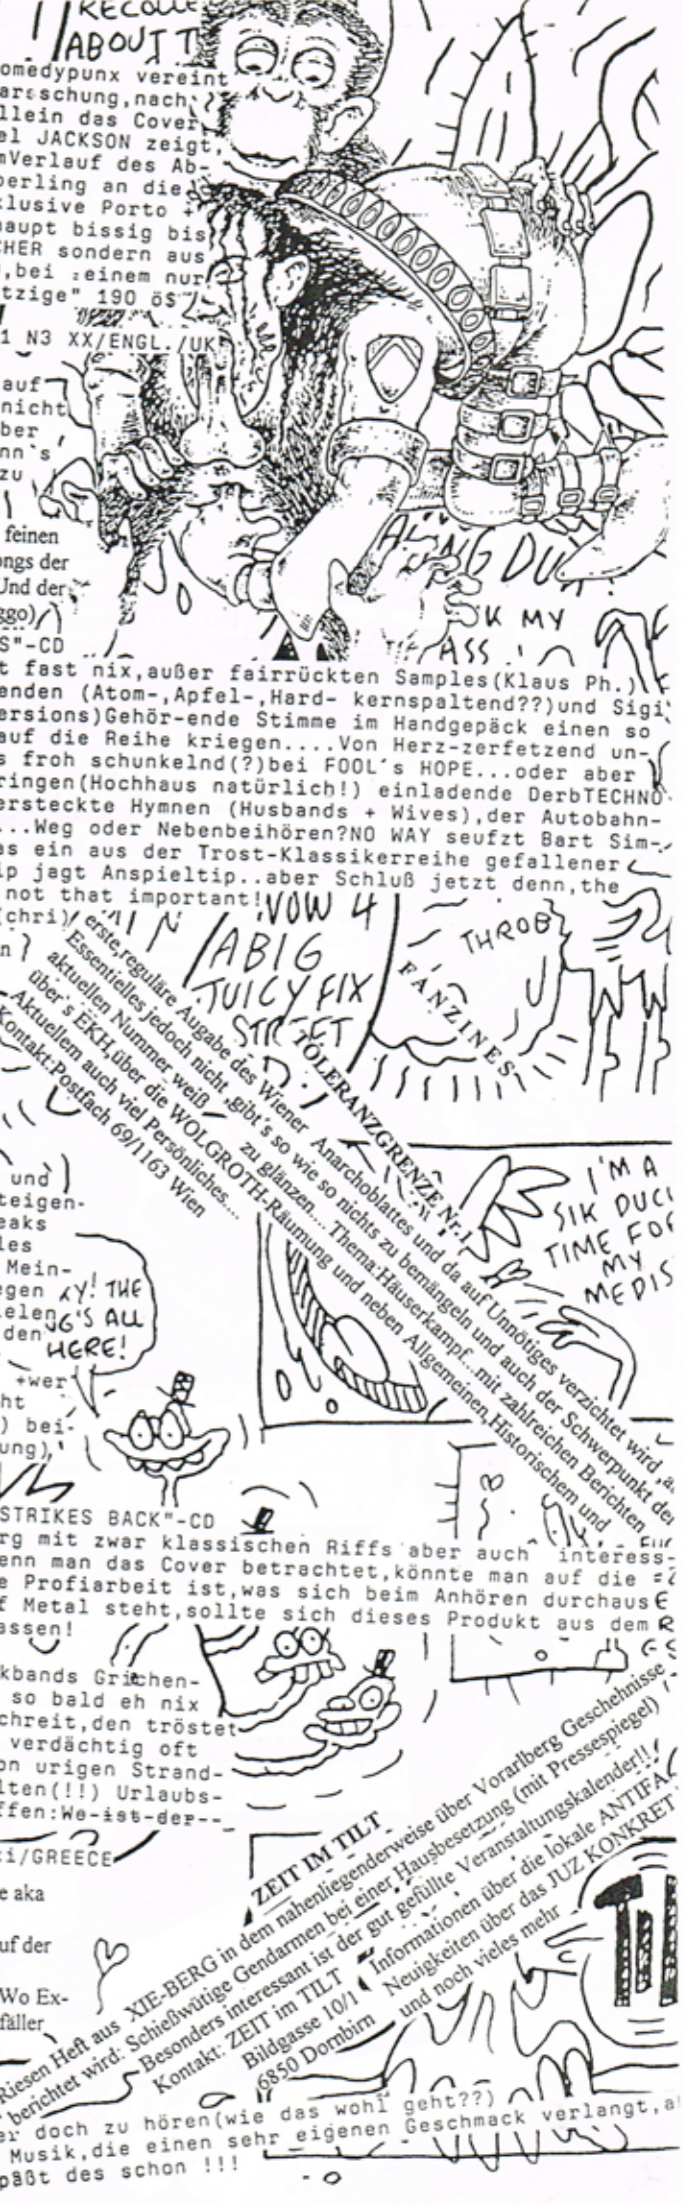 RECOLLE
ABOUT T
omedypunx vereint
arschung,nach
llein das Cover,
el JACKSON zeigt,
mVerlauf des Ab-
perling an die
klusive Porto +
haupt bissig bis
CHER sondern aus
,bei :einem nur
tzige" 190 öS
1 N3 XX/ENGL./UK
auf
nicht
ber
nn`s
zu
feinen
ongs der
Und der
ggo)
K MY
ASS !
S"-CD
t fast nix,außer fairrückten Samples(Klaus Ph.)
enden (Atom-,Apfel-,Hard- kernspaltend??)und Sigi
ersions)Gehör-ende Stimme im Handgepäck einen so
auf die Reihe kriegen....Von Herz-zerfetzend un-
s froh schunkelnd(?)bei FOOL's HOPE...oder aber
ringen(Hochhaus natürlich!) einladende DerbTECHNO
ersteckte Hymnen (Husbands + Wives),der Autobahn-
...Weg oder Nebenbeihören?NO WAY seufzt Bart Sim-
as ein aus der Trost-Klassikerreihe gefallener
ip jagt Anspieltip..aber Schluß jetzt denn,the
not that important!
(chri)
NOW 4
A BIG
JUICY FIX
STREET
THROB
FANZINES
TOLERANZGRENZE Nr.1
erste,reguläre Augabe des Wiener Anarchoblattes und da auf Unnötiges verzichtet wird ,a
Essentielles jedoch nicht ,gibt's so wie so nichts zu bemängeln und auch der Schwerpunkt der
aktuellen Nummer weiß zu glänzen.... Thema:Häuserkampf...mit zahlreichen Berichten
über's EKH,über die WOLGROTH-Räumung und neben Allgemeinen,Historischem und
Aktuellem auch viel Persönliches....
Kontakt:Postfach 69/1163 Wien
I'M A
SIK DUCK
TIME FOR
MY
MEDIS
und
teigen-
eaks
les
Mein-
egen
elen
den
+wer
ht
) bei-
ung),
KY! THE
JG'S ALL
HERE!
STRIKES BACK"-CD
rg mit zwar klassischen Riffs aber auch interess-
enn man das Cover betrachtet,könnte man auf die
e Profiarbeit ist,was sich beim Anhören durchaus
f Metal steht,sollte sich dieses Produkt aus dem
assen!
kbands Griehen-
so bald eh nix
chreit,den tröstet
verdächtig oft
on urigen Strand-
lten(!!) Urlaubs-
ffen:Wo-ist-der--
ki/GREECE
e aka
uf der
Wo Ex-
fäller
ZEIT IM TILT
Riesen Heft aus XIE-BERG in dem nahenliegenderweise über Vorarlberg Geschehnisse
berichtet wird: Schießwütige Gendarmen bei einer Hausbesetzung (mit Pressespiegel)
Besonders interessant ist der gut gefüllte Veranstaltungskalender!!
Kontakt: ZEIT im TILT
Bildgasse 10/1
6850 Dornbirn
Informationen über die lokale ANTIFA
Neuigkeiten über das JUZ KONKRET
und noch vieles mehr
er doch zu hören(wie das wohl geht??)
Musik,die einen sehr eigenen Geschmack verlangt,a
päßt des schon !!!